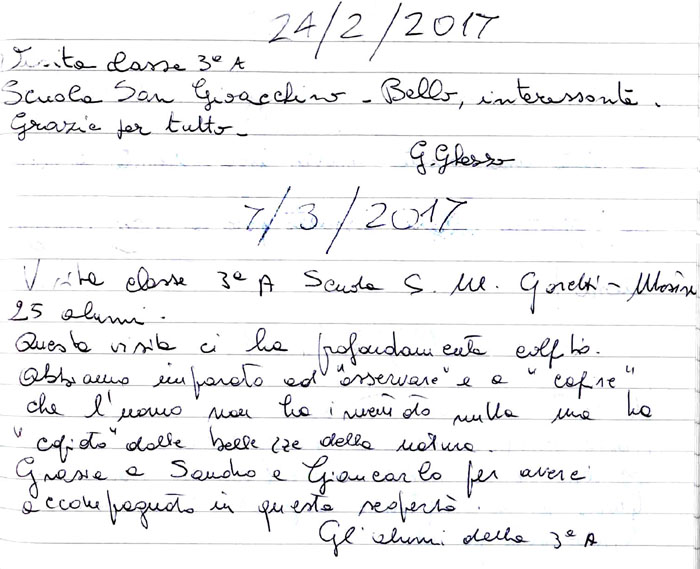 24/2/2017
Visita classe 3ª A
Scuola San Gioacchino - Bello, interessante.
Grazie per tutto -
7/3/2017
Visita classe 3ª A Scuola S. M. Goretti -
25 alunni.
Questa visita ci ha profondamente colpito.
Abbiamo imparato ad "osservare" e a "capire"
che l'uomo non ha inventato nulla ma ha
"copiato" dalle bellezze della natura.
Grazie a Sandro e Giancarlo per averci
accompagnato in questa scoperta.
Gli alunni della 3ª A